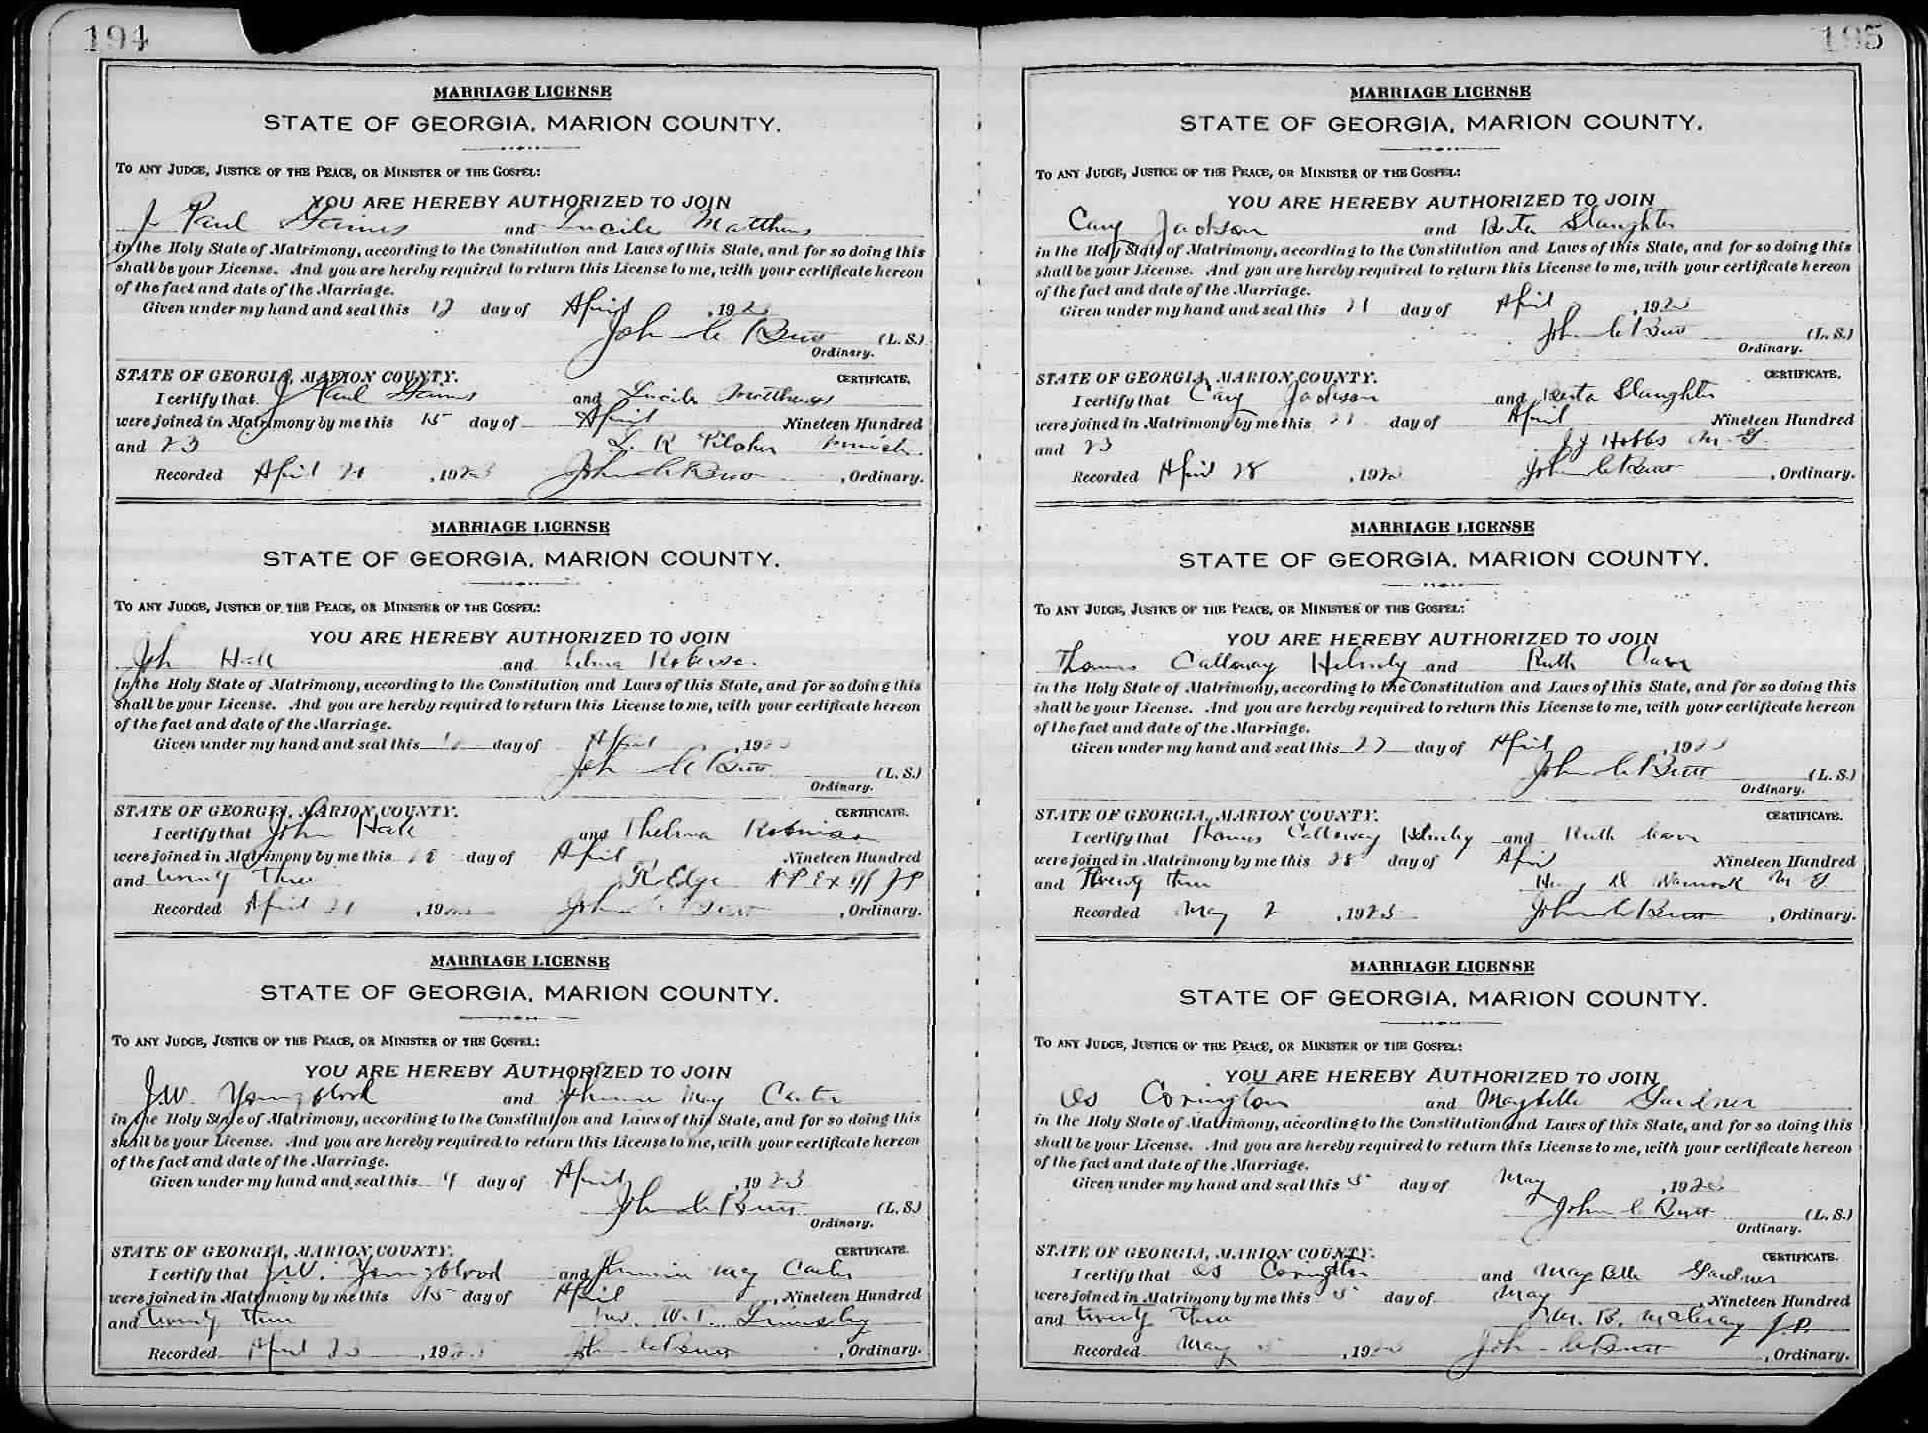 194
MARRIAGE LICENSE
STATE OF GEORGIA, MARION COUNTY.
TO ANY JUDGE, JUSTICE OF THE PEACE, OR MINISTER OF THE GOSPEL:
YOU ARE HEREBY AUTHORIZED TO JOIN
J Paul and Lucile Matthews
in the Holy State of Matrimony, according to the Constitution and Laws of this State, and for so doing this
shall be your License. And you are hereby required to return this License to me, with your certificate hereon
of the fact and date of the Marriage.
Given under my hand and seal this 12 day of April, 1923
John C Butt (L. S.)
Ordinary.
STATE OF GEORGIA, MARION COUNTY. CERTIFICATE.
I certify that J Paul and Lucile Matthews
were joined in Matrimony by me this 15 day of April Nineteen Hundred
and 23 L. R.
Recorded April 21, 1923 John C Butt, Ordinary.
MARRIAGE LICENSE
STATE OF GEORGIA, MARION COUNTY.
TO ANY JUDGE, JUSTICE OF THE PEACE, OR MINISTER OF THE GOSPEL:
YOU ARE HEREBY AUTHORIZED TO JOIN
Joh Hall and
in the Holy State of Matrimony, according to the Constitution and Laws of this State, and for so doing this
shall be your License. And you are hereby required to return this License to me, with your certificate hereon
of the fact and date of the Marriage.
Given under my hand and seal this day of April, 1923
Joh C Butt (L. S.)
Ordinary.
STATE OF GEORGIA, MARION COUNTY. CERTIFICATE.
I certify that John Hall and Thelma Robinson
were joined in Matrimony by me this day of April Nineteen Hundred
and twenty three R Edge N P Ex off J P
Recorded April 21, 19 John C Butt, Ordinary.
MARRIAGE LICENSE
STATE OF GEORGIA, MARION COUNTY.
TO ANY JUDGE, JUSTICE OF THE PEACE, OR MINISTER OF THE GOSPEL:
YOU ARE HEREBY AUTHORIZED TO JOIN
J.W. Youngblood and May Carter
in the Holy State of Matrimony, according to the Constitution and Laws of this State, and for so doing this
shall be your License. And you are hereby required to return this License to me, with your certificate hereon
of the fact and date of the Marriage.
Given under my hand and seal this 9 day of April, 1923
John C Butt (L. S.)
Ordinary.
STATE OF GEORGIA, MARION COUNTY. CERTIFICATE.
I certify that J.W. Youngblood and May Carter
were joined in Matrimony by me this 15 day of April, Nineteen Hundred
and twenty three W. T.
Recorded April 23, 1923 John C Butt, Ordinary.
195
MARRIAGE LICENSE
STATE OF GEORGIA, MARION COUNTY.
TO ANY JUDGE, JUSTICE OF THE PEACE, OR MINISTER OF THE GOSPEL:
YOU ARE HEREBY AUTHORIZED TO JOIN
Cary Jackson and Berta Slaughter
in the Holy State of Matrimony, according to the Constitution and Laws of this State, and for so doing this
shall be your License. And you are hereby required to return this License to me, with your certificate hereon
of the fact and date of the Marriage.
Given under my hand and seal this 21 day of April, 1923
John C Butt (L. S.)
Ordinary.
STATE OF GEORGIA, MARION COUNTY. CERTIFICATE.
I certify that Cary Jackson and Berta Slaughter
were joined in Matrimony by me this day of April Nineteen Hundred
and 23 J J Hobbs M. G.
Recorded April 28, 1923 John C Butt, Ordinary.
MARRIAGE LICENSE
STATE OF GEORGIA, MARION COUNTY.
TO ANY JUDGE, JUSTICE OF THE PEACE, OR MINISTER OF THE GOSPEL:
YOU ARE HEREBY AUTHORIZED TO JOIN
Thomas Calloway and Ruth
in the Holy State of Matrimony, according to the Constitution and Laws of this State, and for so doing this
shall be your License. And you are hereby required to return this License to me, with your certificate hereon
of the fact and date of the Marriage.
Given under my hand and seal this 27 day of April, 1923
John C Butt (L. S.)
Ordinary.
STATE OF GEORGIA, MARION COUNTY. CERTIFICATE.
I certify that Thomas Calloway and Ruth
were joined in Matrimony by me this 28 day of April Nineteen Hundred
and Twenty three M G
Recorded May 2, 1923 John C Butt, Ordinary.
MARRIAGE LICENSE
STATE OF GEORGIA, MARION COUNTY.
TO ANY JUDGE, JUSTICE OF THE PEACE, OR MINISTER OF THE GOSPEL:
YOU ARE HEREBY AUTHORIZED TO JOIN
Os Covington and Maybelle Gardner
in the Holy State of Matrimony, according to the Constitution and Laws of this State, and for so doing this
shall be your License. And you are hereby required to return this License to me, with your certificate hereon
of the fact and date of the Marriage.
Given under my hand and seal this 5 day of May, 1923
John C Butt (L. S.)
Ordinary.
STATE OF GEORGIA, MARION COUNTY. CERTIFICATE.
I certify that Os Covington and May Belle Gardner
were joined in Matrimony by me this 5 day of May, Nineteen Hundred
and twenty three J.P.
Recorded May, 1923 John C Butt, Ordinary.